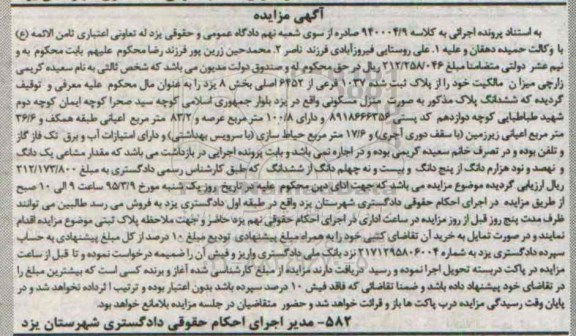 آگهی مزایده
به استناد پرونده اجرائی به کلاسه ۹۴۰۰۰۴/۹ صادره از سوی شعبه نهم دادگاه عمومی و حقوقی یزد له تعاونی اعتباری ثامن الائمه (ع)
با وکالت حمیده دهقان و علیه ۱. علی روستایی فیروزآبادی فرزند ناصر ۲. محمدحین زرین پور فرزند رضا محکوم علیهم بابت محکوم به و
نیم عشر دولتی متضامنا مبلغ ۲۱۲/۲۵۸/۰۴۶ ریال در حق محکوم له و صندوق دولت مدیون می باشد که شخص ثالثی به نام سعیده کریمی
زارچی میزان مالکیت خود را از پلاک ثبت شده ۱۰۳۷ فرعی از ۶۴۵۲ اصلی بخش ۸ یزد را به عنوان مال محکوم علیه معرفی و توقیف
گردیده که ششدانگ پلاک مذکور به صورت منزل مسکونی واقع در یزد بلوار جمهوری اسلامی کوچه سید صحرا کوچه ایمان کوچه دوم
شهید طباطبایی کوچه دوازدهم کد پستی ۸۹۱۸۶۶۶۳۵۶ و دارای ۱۰۰/۸ متر مربع عرصه و ۸۳/۲ متر مربع اعیانی طبقه همکف و ۳۶/۶
متر مربع اعیانی زیرزمین (با سقف دوری آجری) و ۱۷/۶ متر مربع حیاط سازی (با سرویس بهداشتی) و دارای امتیازات آب و برق تک فاز گاز
و تلفن بوده و در تصرف خانم سعیده کریمی بوده و در اجاره نمی باشد و بابت پرونده اجرایی در بازداشت می باشد که مقدار مشاعی یک دانگ
و نهصد و نود هزارم دانگ از پنج دانگ و بیست و نه چهلم دانگ از ششدانگ که طبق کارشناس رسمی دادگستری به مبلغ ۲۱۲/۱۷۳/۸۰۰
ریال ارزیابی گردیده موضوع مزایده می باشد که جهت ادای دین محکوم علیه در تاریخ روز یک شنبه مورخ ۹۵/۳/۹ ساعت ۹ الی ۱۰ صبح
از طریق مزایده در اجرای احکام حقوقی دادگستری شهرستان یزد واقع در طبقه اول دادگستری یزد به فروش می رسد طالبین می توانند
ظرف مدت پنج روز قبل از روز مزایده در ساعت اداری در اجرای احکام حقوقی نهم یزد حاضر و جهت ملاحظه پلاک ثبتی موضوع مزایده اقدام
نمایند و در صورت تمایل به خرید آن تقاضای کتبی خود را به همراه مبلغ پیشنهادی تودیع مبلغ ۱۰ درصد از کل مبلغ پیشنهادی به حساب
سپرده دادگستری یزد به شماره ۲۱۷۱۲۹۵۸۰۶۰۰۴ نزد بانک ملی دادگستری واریز و فیش آن را ضمیمه درخواست نموده و تا قبل از ساعت
مزایده در پاکت دربسته تحویل اجرا نموده و رسید دریافت دارند مزایده از مبلغ کارشناسی شده آغاز و برنده کسی است که بیشترین مبلغ را
در تقاضای خود پیشنهاد داده باشد و ضمنا تقاضائی که فاقد فیش ۱۰ درصد سپرده باشد بدون اعتبار بوده و ترتیب اثر داده نخواهد شد و در
پایان وقت رسیدگی مزایده درب پاکت ها باز و قرائت خواهد شد و حضور متقاضیان در جلسه مزایده بلامانع خواهد بود.
۵۸۲- مدیر اجرای احکام حقوقی دادگستری شهرستان یزد